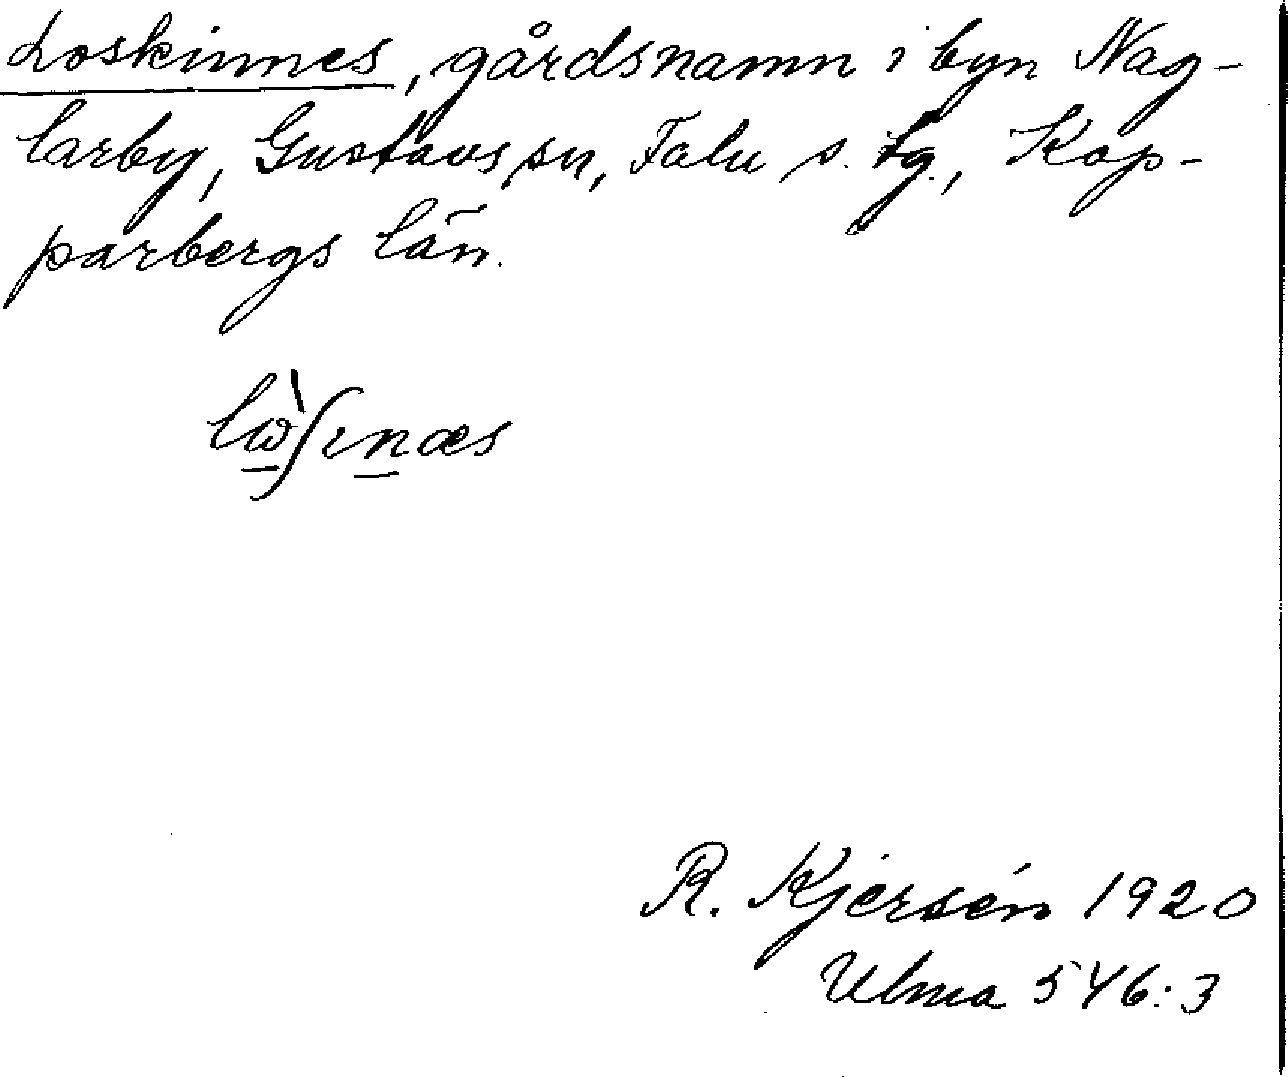 Loskinnes, gårdsnamn i byn Nag-
larby, Gustavs sn, Falu s. tg., Kop-
parbergs län.
lὼ̲ʃın̲æs
R. Kjersén 1920
Ulma 546:3